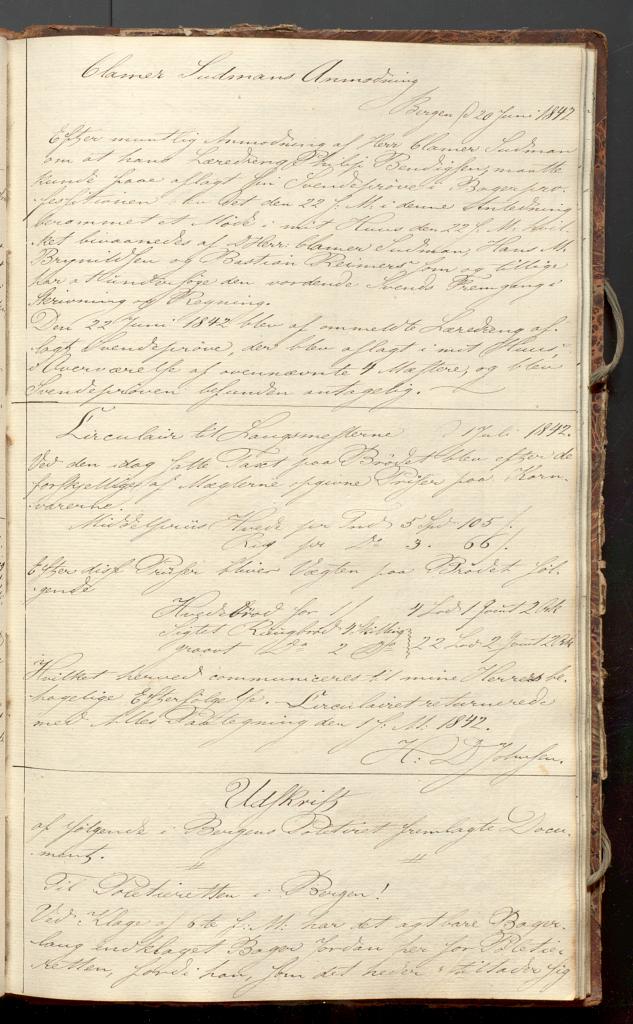 Clamer Sudmans Anmodning
Bergen d 20 Juni 1842
Efter mundtlig Anmodning af Herr Clamer Sudman
om at hans Læredreng Philip Bendixsen, maatte
kunde faae aflagt sin Svendeprøve i Bagerpro-
fessitionen blev det den 22 f. M. i denne Anledning
berammet et Møde i mit Huus den 22 f. M. hvil-
ket bivaanedes af Herr: Clamer Sudman, Hans M.
Brynildsen og Bastian Reimers som og tillige
har at undersøge den vordende Svends Fremgang i
Skrivning og Regning.
Den 22 Juni 1842 blev af ommeldte Læredreng af-
lagt Svendeprøve, der blev aflagt i mit Huus,
i Overværelse af ovennævnte 4 Mestere, og blev
Svendeprøven befunden antagelig.
Circulair til Laugsmesterne d 1 Juli 1842.
Ved den idag satte Taxt paa Brødet blev efter de
forskjellige af Mæglerne opgivne Priser paa Korn-
varerne.
Middelpriis Hvede pr Tnd 5 Spd 105 /.
Rug pr Do 3. 66 /.
Efter disse Priser bliver Vægten paa Brødet føl-
gende
Hvedebrød for 1 / 4 Lod 1 Qvint 2 Ort
Sigtet Rougbrød 4 Skilling
groovt Do 2 Do 22 Lod 2 Qvint 2 Ort
Hvilket herved communiceres til mine Herrer be-
hagelige Efterfølgelse. Circulairet returnerede
med Alles Paategning den 1 f. M. 1842.
H: D Johnsen.
Udskrift
af følgende i Bergens Politiret fremlagte Docu-
ment.
Til Politieretten i Bergen!
Ved Klage af 6te f: M: har det agtbare Bager-
laug indklaget Bager Jordan her for Politie-
Retten, fordi han, som det heder: tillader sig